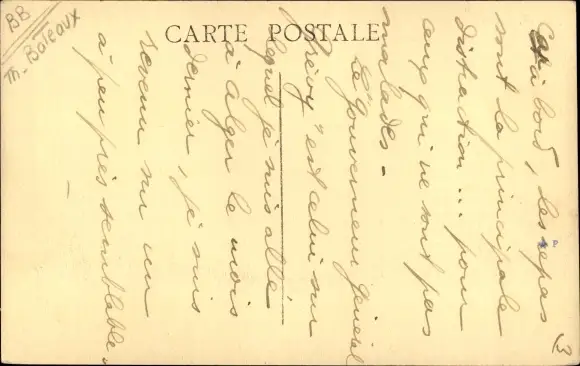 BB
Th. Bateaux
CARTE POSTALE
A bord, les repas
sont la principale
distraction... pour
ceux qui ne sont pas
malades.
Le "Gouverneur Général
Grévy" est celui sur
lequel je suis allé
à Alger le mois
dernier, je suis
revenu sur un
à peu près semblable.
3